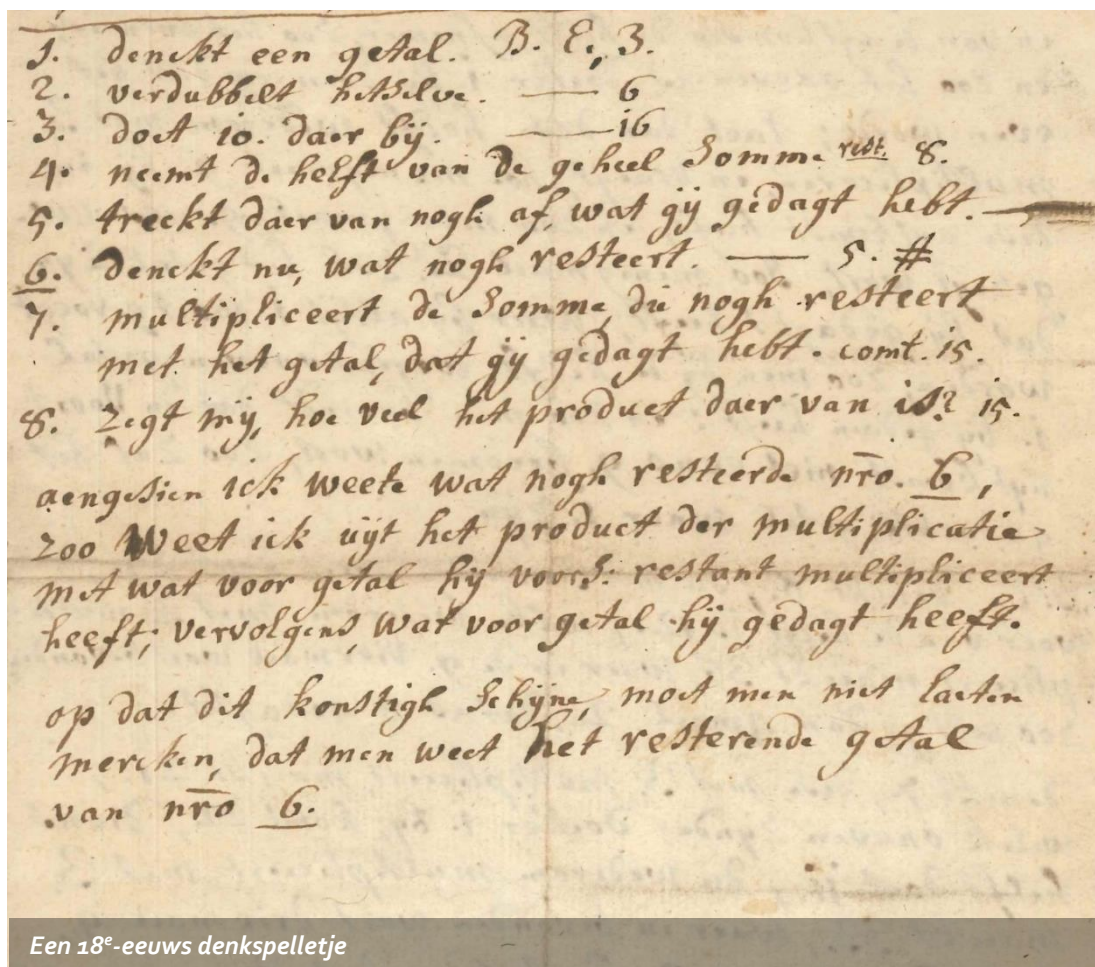 1. denckt een getal. B. E., 3.
2. verdubbelt hetselve. — 6
3. doet 10. daer bij. — 16
4. neemt de helft van de geheel somme rest. 8.
5. treckt daer van nogh af, wat gÿ gedagt hebt. —
6. denckt nu, wat nogh resteert. — 5. #
7. multipliceert de somme, die nogh resteert
met het getal, dat gÿ gedagt hebt. comt. 15.
8. zegt mÿ, hoe veel het product daer van is? 15.
aengesien ick weete wat nogh resteerde nro. 6,
zoo weet ick uÿt het product der multiplicatie
met wat voor getal hÿ voors: restant multipliceert
heeft; vervolgens, wat voor getal hÿ gedagt heeft.
op dat dit konstigh schijne, moet men niet laeten
mercken, dat men weet het resterende getal
van nro 6.
Een 18e-eeuws denkspelletje